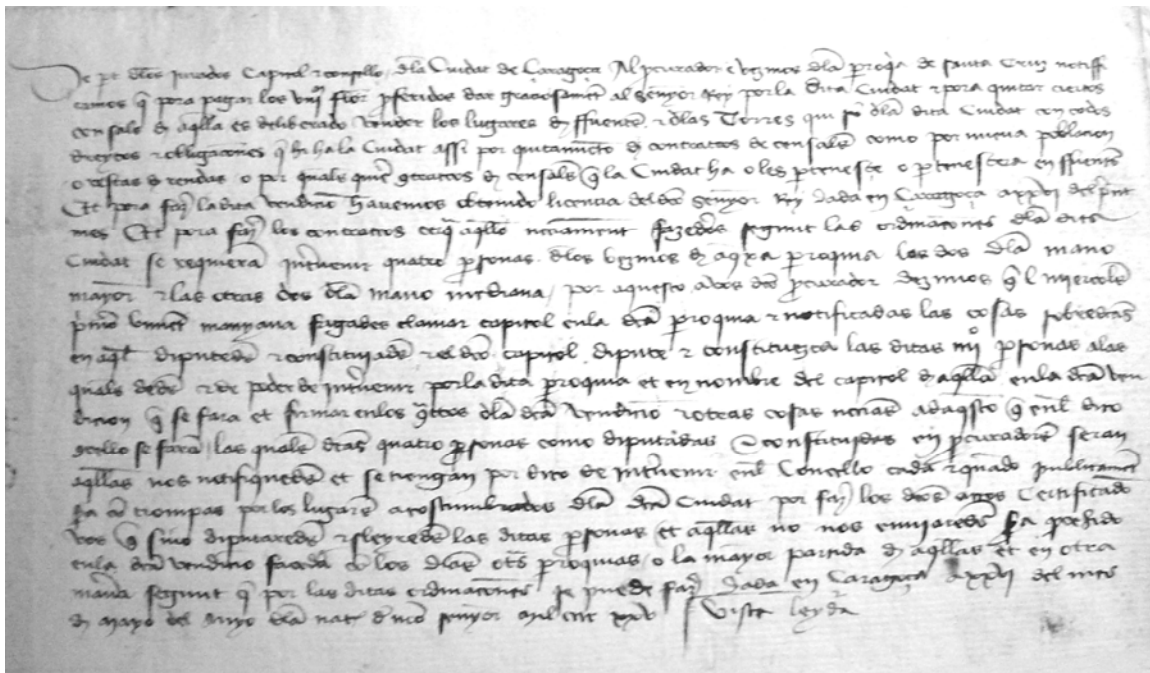 De pt dlos jurados Capitol e consello dla Ciudat de Caragoça Al pcurador e vezinos dla proqia de santa Cruz notiffi
camos q pora pagar los flor pferidos dar graciosament al senyor Rey por la dita Ciudat e pora quitar ciertos
censales d aqlla es deliberado vender los lugares d ffuentes e dlas Torres qui son dla dita Ciudat con todos
dreytos e obligaciones q hi ha la Ciudat assi por quitamiento d contractos de censales como por nueva poblacion
o restas d rendas o por quals quiere gtractos d censales q la Ciudat ha o les pteneste o ptenestera en ffuentes
Et pora fazer la dita vendicion havemos obtenido licencia del dito senyor Rey dada en Caragoça a xxvi del pnt
mes Et pora fazer los contractos cerqa aqllo necessariament fazederos segunt las ordinaciones dla dita
Ciudat se requiera intvenir quatro psonas dlos vezinos d aqxa proquia las dos dla mano
mayor e las otras dos dla mano mediana por aquesto a vos dito pcurador dezimos q l miercoles
pmero vinient manyana fagades clamar capitol en la dita proquia e notificadas las cosas sobreditas
en aql diputedes e constituyades e el dito capitol dipute e constituezca las ditas iiij psonas a las
quals dedes e de poder de intvenir por la dita proquia et en nombre del capitol d aqlla en la dita ven
dicion q se fara et firmar en los gttos dla dita vendicion e otras cosas necessarias ad aqsto q enl dito
gcello se faran las quales ditas quatro psonas como diputadas e constituydas en pcuradores seran
aqllas nos notifiquedes et se tiengan por dito de intvenir enl Concello cada e quando publicament
sea con trompas por los lugares acostumbrados dla dita Ciudat por fazer los ditos actos Certificando
vos q sino diputaredes e sleyredes las ditas psonas et aqllas no nos enviaredes sera pcehido
en la dita vendicion fazedera con los dlas otras proquias o la mayor partida d aqllas et en otra
manera segunt q por las ditas ordinaciones se puede fazer dada en Caragoça a xxvi del mes
d mayo del anyo dla nat de nro senyor mil cccc xxv Vista leyda